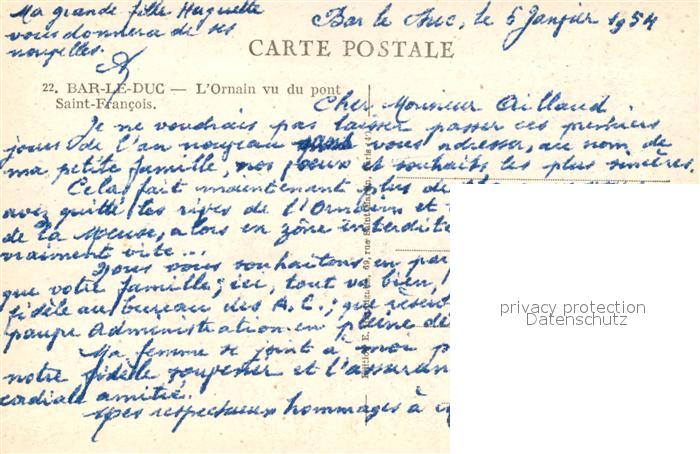 Ma grande fille Huguette
vous donnera de ses
nouvelles.
Bar le Duc, le 5 Janvier 1954
CARTE POSTALE
22. BAR-LE-DUC — L'Ornain vu du pont
Saint-François.
Cher Monsieur Aillaud.
Je ne voudrais pas laisser passer ces premiers
jours de l'an nouveau sans vous adresser, au nom de
ma petite famille, nos voeux et souhaits les plus sincères.
Cela fait maintenant plus de
avez quitté les rives de l'Ornain et
de la Meuse, alors en zône interdite
vraiment vite...
Nous vous souhaitons en par
que votre famille; ici, tout va bien,
fidèle au bureau des A.C.; que
pauvre Administration en pleine dé
Ma femme se joint à moi p
notre fidèle souvenir et l'assuran
cordiale amitié.
Mes respectueux hommages à
privacy protection
Datenschutz